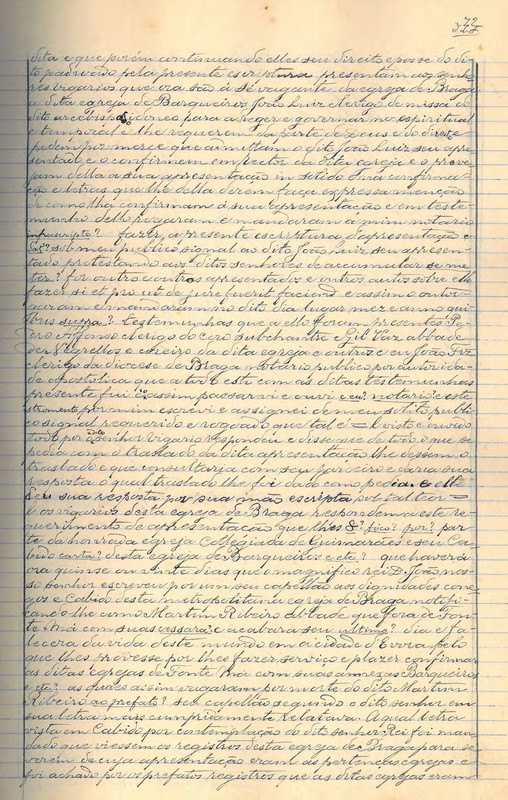 72
dita e que porém continuando elles seu direito e posse do di-
to padroado pela presente escriptura presentam aos senho-
res vigarios que ora são á sé vagante da egreja de Braga
a dita egreja de Barqueiros João Luiz clerigo de missa do
dito arcebispado idoneo para a reger e governar no espiritual
e temporal e lhe requerem da parte de Deus e do direito e
pedem por mercê que admittam o dito João Luiz seu apre-
sentado e o confirmem em rector da dita egreja e o prove-
jam della á sua apresentação in solido e na confirma-
ção e letras que lhe della derem faça expressa menção
de como lha confirmam á sua apresentação e em teste-
munho dello rogaram e mandaram a mim notario
infrascripto? fazer a presente escriptura d'apresentação e
sob meu publico signal ao dito João Luiz seu apresen-
tado protestando aos ditos senhores de accumular se me-
ter? for outro e outros apresentados e outros autos sobre ello
fazer si et pro ut de jure fuerit faciend e assim o outor-
garam e mandaram no dito dia lugar mez e anno qui-
bus supra? testemunhas que a ello foram presentes Pe-
ro Affonso clerigo do coro subchantre e Gil Vaz abbade
de Negrellos e coreiro da dita egreja e outros e eu João Frz
clerigo da diocese de Braga notario publico por autorida-
de apostolica que a todo esto com as ditas testemunhas
presente fui e assim passar vi e ouvi e eu notario este
stromento por mim escrevi e assignei de meu solito publi-
co signal requerido e rogado que tal é = O visto e ouvido
todo por o dito senhor Vigario respondeu e disse que de todo o que se
pedia com o traslado da dita apresentação lhe dessem o
traslado e que consultaria com seu parceiro e daria sua
resposta o qual traslado lhe foi dado como pedia e elle
deu sua resposta por sua mão escripta por tal teor =
Os vigarios desta egreja de Braga respondem a este re-
querimento de apresentação que lhes é? fico? por? par-
te da honrada egreja Collegiada de Guimarães e seu Ca-
bido carta? desta egreja de Barqueiros e etc? que haverá
ora quinse ou vinte dias que o magnifico rei D. João nos-
so senhor escreveu por um seu capellão ás dignidades cone-
gos e Cabido desta metropolitana egreja de Braga notifi-
cando-lhe como Martim Ribeiro abbade que fora de Fon-
te Má com suas cessara? e acabara seu ultimo? dia e fa-
lecera da vida deste mundo em a cidade d'Evora pelo
que lhes provesse por lhe fazer serviço e plazer confirmar
as ditas egrejas de Fonte Má com suas annexas Barqueiros
e etc? as quaes assim vagaram por morte do dito Martim
Ribeiro ao prefato? seu capellão segundo o dito senhor em
sua letra mais cumpridamente relatava. A qual letra
vista em Cabido por contemplação do dito senhor Rei foi man-
dado que vissem os registros desta egreja de Braga para se
verem de cuja apresentação eram as pertenças egrejas e
foi achado por os prefatos registros que as ditas egrejas eram